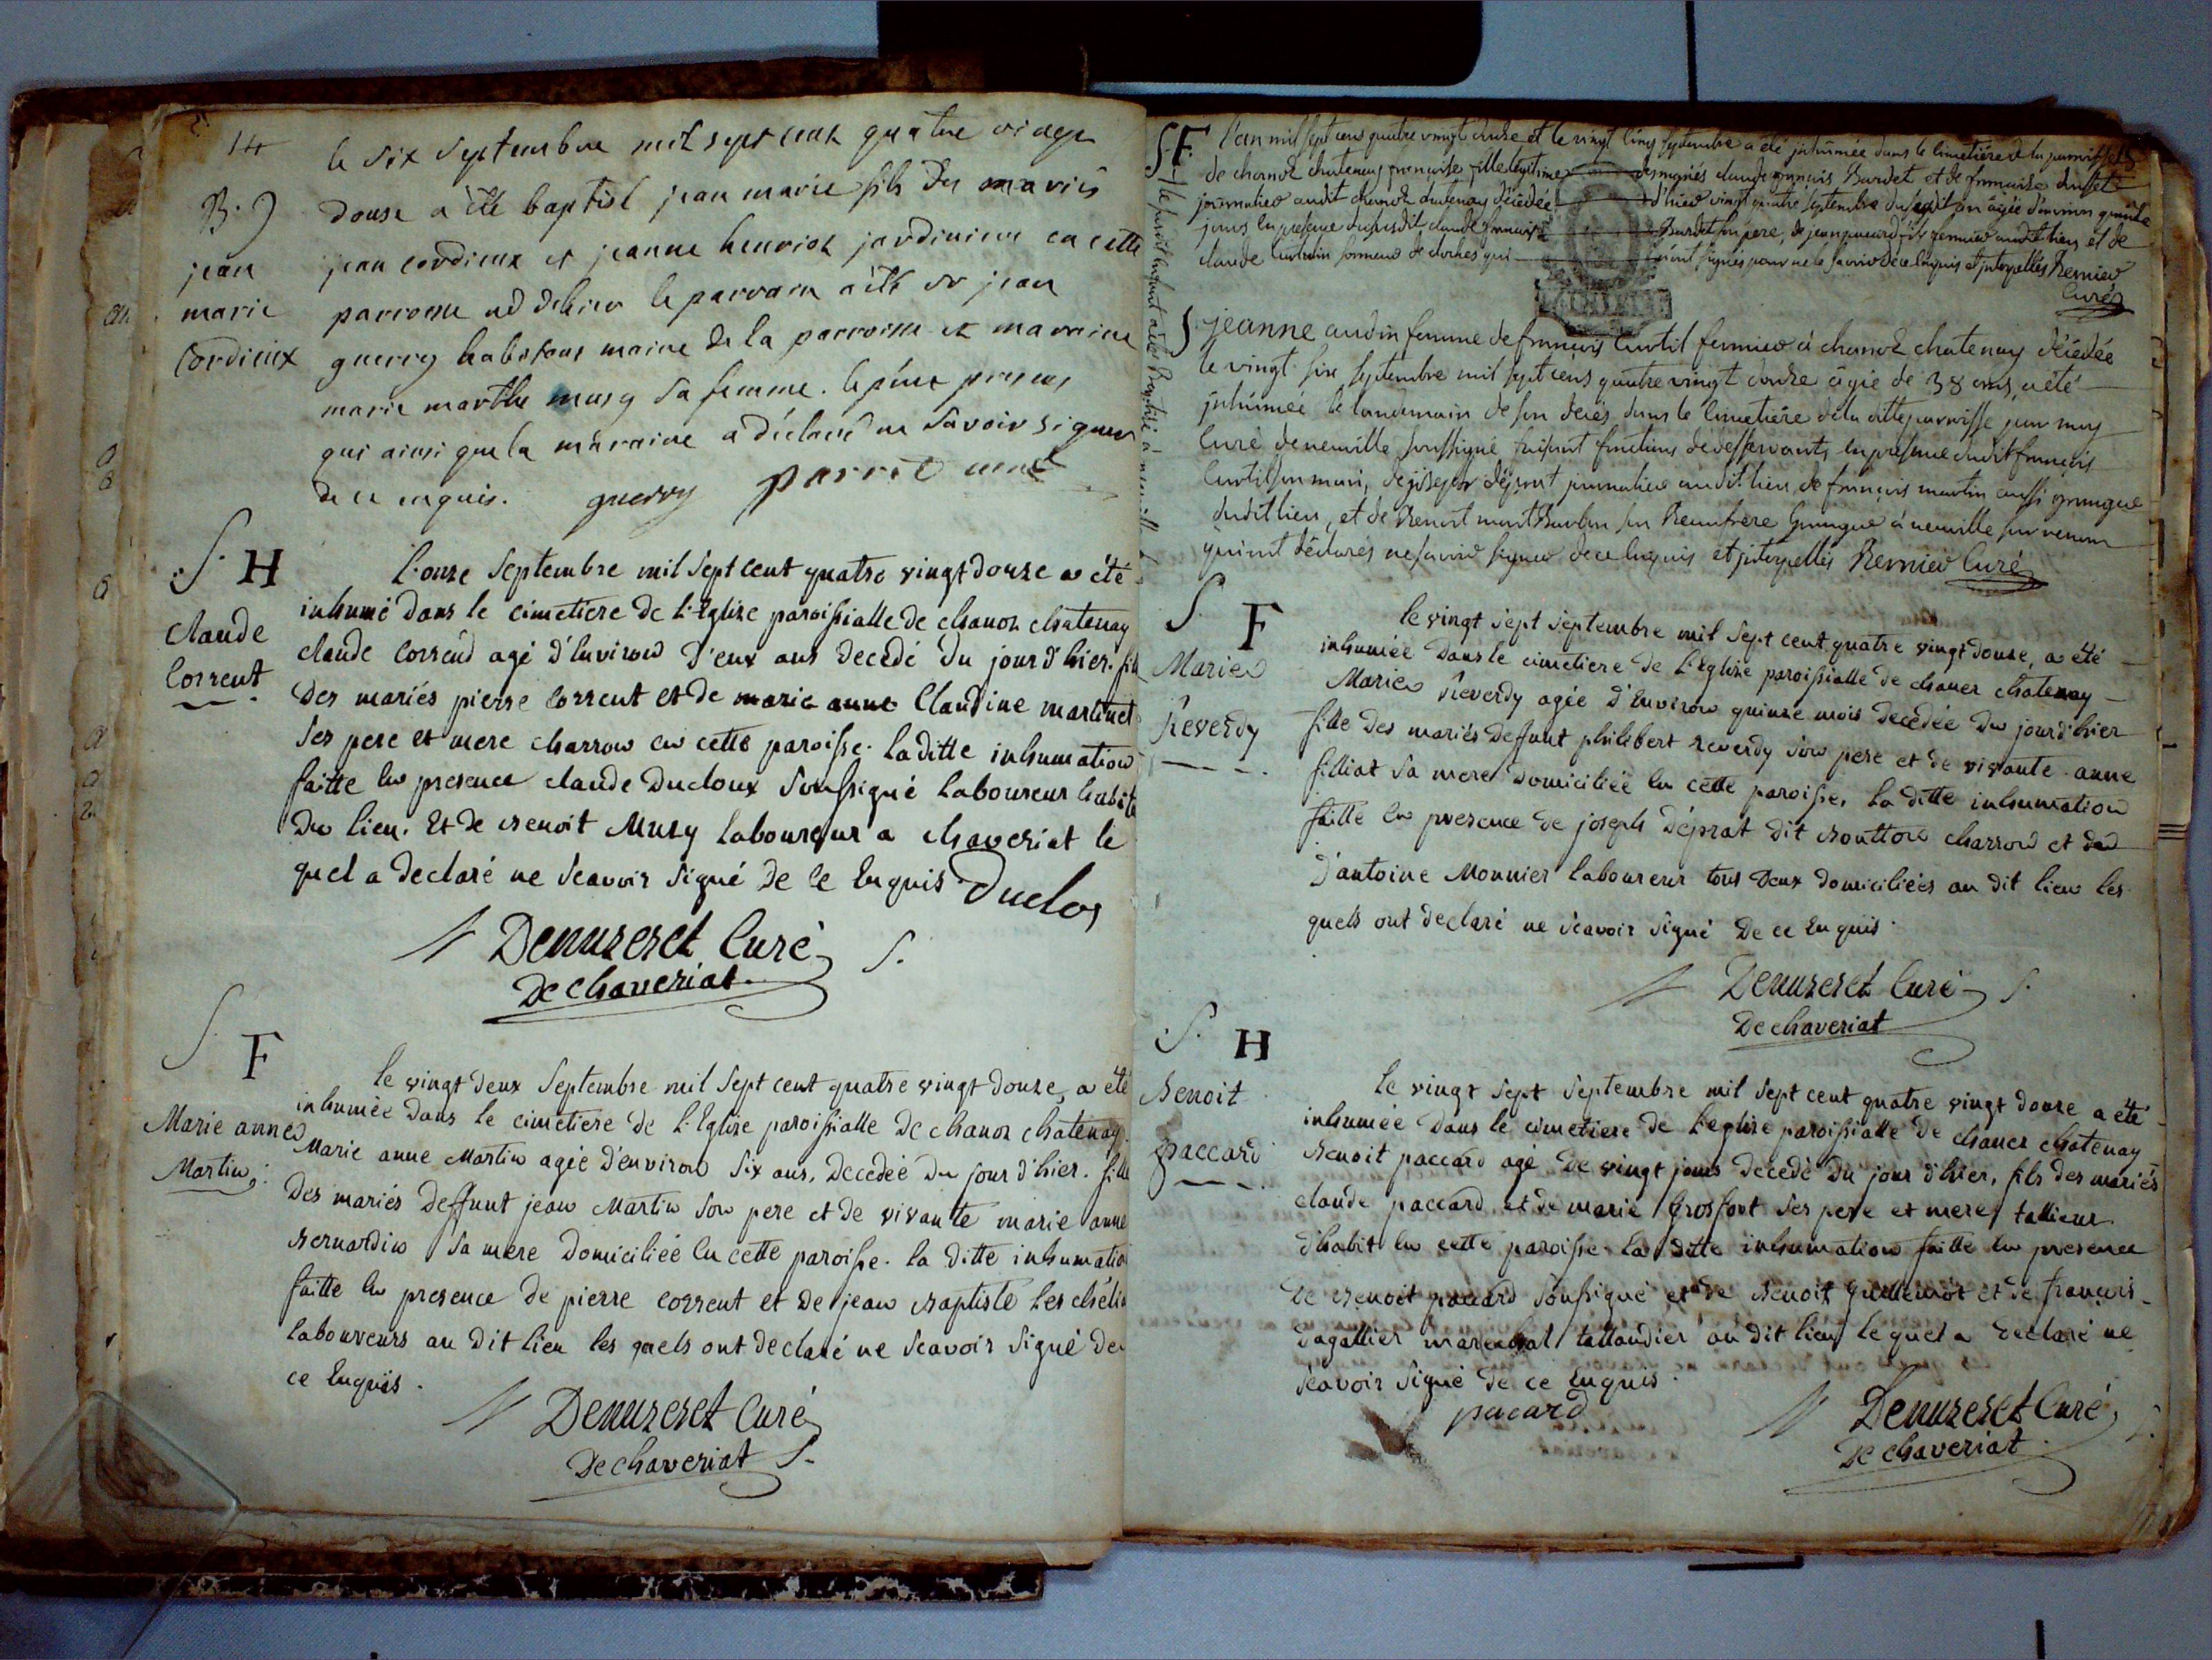 14
le six septembre mil sept cent quatre vingt
B.
jean
marie
Cordieux
douse a été baptisé jean marie fils des mariés
jean cordieux et jeanne henriot jardiniers en cette
parroisse né d'hier le parrain a été sr jean
guerry maire de la parroisse et marraine
marie marthe musy sa femme. le père present
qui ainsi que la maraine a déclaré ne savoir signer
de ce enquis. guerry
S. H
Claude
Corrent
L'onze septembre mil sept cent quatre vingt douze a été
inhumé dans le cimetiere de L'Eglize paroissialle de chanoz chatenay
claude Corrend agé d'Environ d'eux ans decedé du jour d'hier. fils
des mariés pierre Corrent et de marie anne Claudine martinet
ses pere et mere charron en cette paroisse. la ditte inhumation
faitte en presence claude Ducloux soussigné laboureur habit
du lieu. Et de Benoit Musy laboureur a chaveriat le
quel a declaré ne scavoir signé de ce Enquis. Duclos
Demureret Curé
De chaveriat.
S.
S. F
Marie anne
Martin.
le vingt deux septembre mil sept cent quatre vingt douze, a été
inhumée dans le cimetiere de L'Eglize paroissialle de chanoz chatenay.
Marie anne Martin agée d'environ six ans, decedée du jour d'hier. fille
des mariés deffunt jean Martin son pere et de vivante marie anne
Bernardin sa mere domiciliée en cette paroisse. la ditte inhumation
faitte en presence de pierre corrent et de jean Baptiste
laboureurs au dit lieu les quels ont declaré ne scavoir signé de
ce Enquis.
Demureret Curé
De chaveriat S.
S. F. l'an mil sept cens quatre vingt douze et le vingt cinq septembre a été inhumée dans le cimetière de la paroisse
de chanoz chatenay françoise fille légitime des mariés claude françois Burdet et de françoise
journalier audit chanoz chatenay décédée d'hier vingt quatre septembre dudit an âgée d'environ quinze
jours en présence dudit claude françois Burdet son pere, de jean fermier audit lieu et de
claude sonneur de cloches qui n'ont signés pour ne le savoir de ce enquis et interpellés Bernier
Curé
S. jeanne audin femme de françois Curtil fermier à chanoz chatenay décédée
le vingt six septembre mil sept cens quatre vingt douze âgée de 38 ans, a été
inhumée le landemain de son décès dans le cimetière de la ditte parroisse par moy
Curé de neuville soussigné faisant fonctions de desservant, en présence dudit françois
Curtil son mari, de joseph déprat journalier audit lieu, de françois martin aussi grangé
dudit lieu, et de Benoit mont Burbon son Beaufrere Grangé à neuville sur renom
qui n'ont déclarés ne savoir signer de ce enquis et interpellés Bernier Curé
S. F
Marie
Reverdy
le vingt sept septembre mil sept cent quatre vingt douze, a été
inhumée dans le cimetiere de L'Eglize paroissialle de chanez chatenay
Marie Reverdy agée d'Environ quinze mois decedée du jour d'hier
fille des mariés deffunt philibert reverdy son pere et de vivante anne
filliat sa mere domiciliée en cette paroisse, la ditte inhumation
faitte en presence de joseph déprat dit moutton charron et
d'antoine Monnier laboureur tous deux domiciliées au dit lieu les
quels ont declaré ne scavoir signé de ce Enquis.
Demureret Curé
De chaveriat
S.
S. H
Benoit
paccard
le vingt sept septembre mil sept cent quatre vingt douze a été
inhumée dans le cimetiere de L'eglize paroissialle de chanez chatenay
Benoit paccard agé de vingt jours decedé du jour d'hier, fils des mariés
claude paccard et de marie Grosfont ses pere et mere, tallieur
d'habit en cette paroisse la ditte inhumation faitte en presence
de Benoit paccard soussigné et de Benoit Guillemot et de françois
dagallier marechal tallandier au dit lieu lequel a declaré ne
scavoir signé de ce Enquis.
pacard
Demureret Curé
De chaveriat